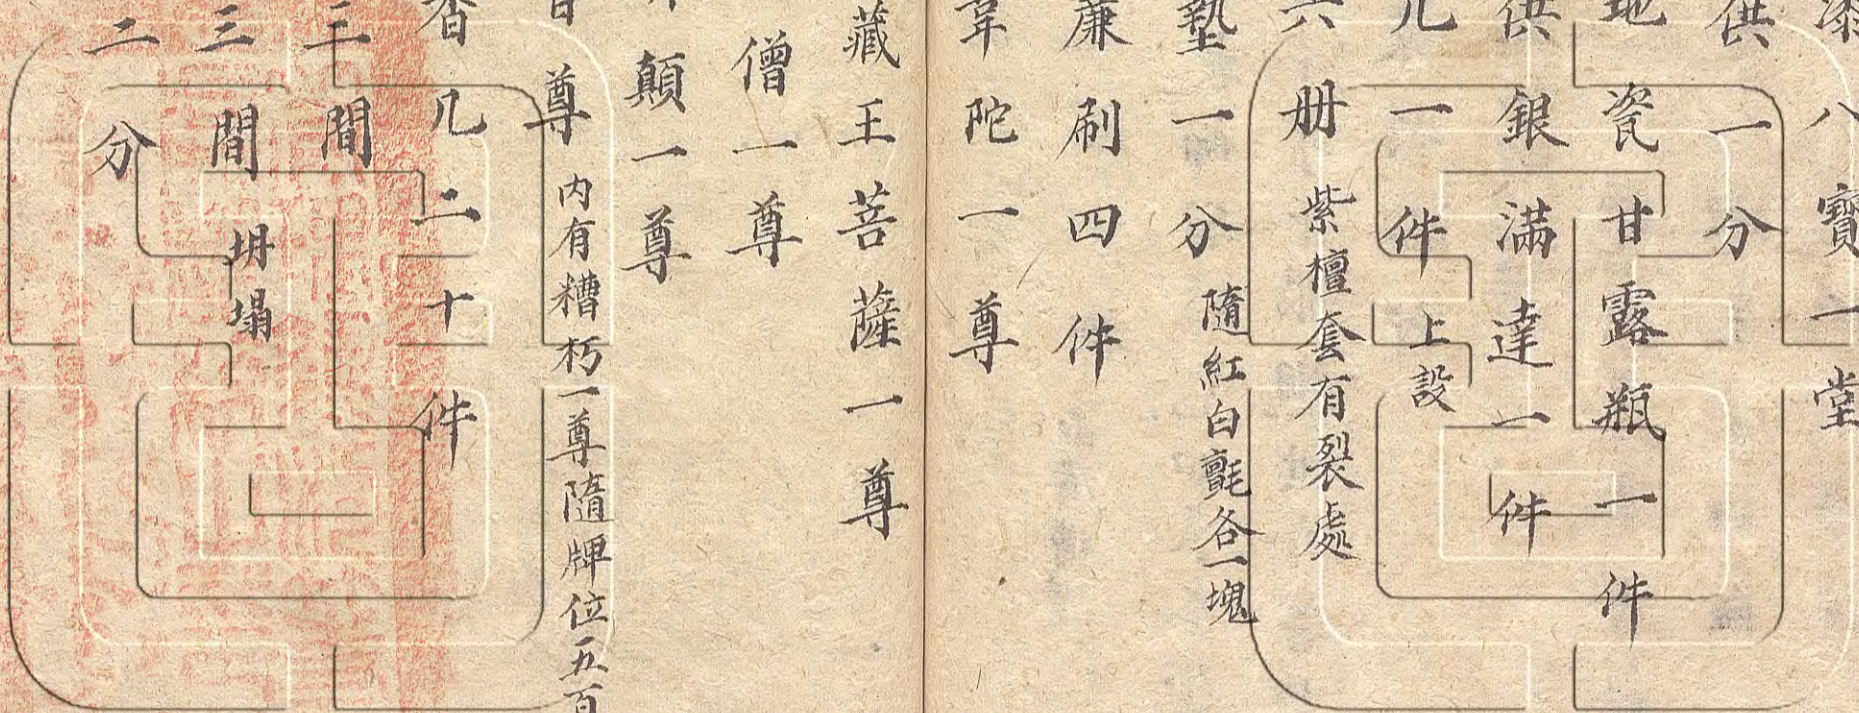 八寶一堂
供一分
地瓷甘露瓶一件
供銀滿達一件
几一件上設
六册紫檀套有裂處
墊一分隨紅白氊各一塊
亷刷四件
韋陀一尊
藏王菩薩一尊
僧一尊
顛一尊
尊内有糟朽一尊隨牌位五百
香几二十件
三間
三間坍塌
二分